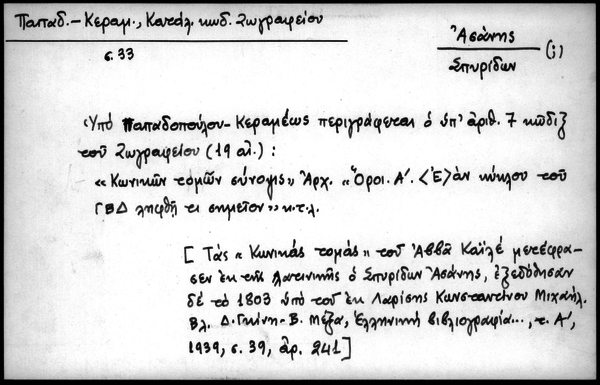 Παπαδ.-Κεραμ., Κατάλ. κωδ. Ζωγραφείου
σ. 33
Ἀσάνης (;)
Σπυρίδων
Ὑπὸ Παπαδοπούλου-Κεραμέως περιγράφεται ὁ ὑπ' ἀριθ. 7 κῶδιξ
τοῦ Ζωγραφείου (19 αἰ.) :
«Κωνικῶν τομῶν σύνοψις» Ἀρχ. «Ὅροι. Α'. <Ἐ>ὰν κύκλου τοῦ
ΓΒΔ ληφθῇ τι σημεῖον» κ.τ.λ.
[Τὰς «Κωνικὰς τομὰς» τοῦ Ἀββᾶ Καϊλὲ μετέφρα-
σεν ἐκ τῆς λατινικῆς ὁ Σπυρίδων Ἀσάνης, ἐξεδόθησαν
δὲ τὸ 1803 ὑπὸ τοῦ ἐκ Λαρίσης Κωνσταντίνου Μιχαήλ.
Βλ. Δ. Γκίνη-Β. Μέξα, Ἑλληνικὴ βιβλιογραφία..., τ. Α',
1939, σ. 39, ἀρ. 241]